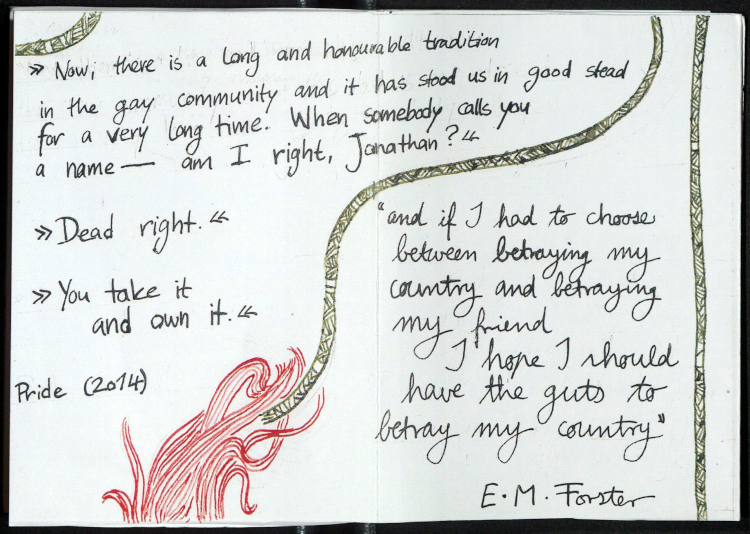 » Now, there is a long and honourable tradition
in the gay community and it has stood us in good stead
for a very long time. When somebody calls you
a name — am I right, Jonathan? «
» Dead right. «
» You take it
and own it. «
Pride (2014)
"and if I had to choose
between betraying my
country and betraying
my friend
I hope I should
have the guts to
betray my country"
E. M. Forster